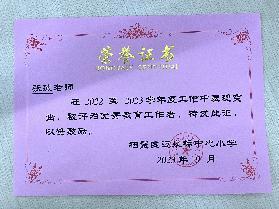 荣誉证书
老师
在 2022 至 2023 学年度工作中表现突
出，被评为优秀教育工作者，特发此证，
以资鼓励。
中心小学
2023 年 9 月